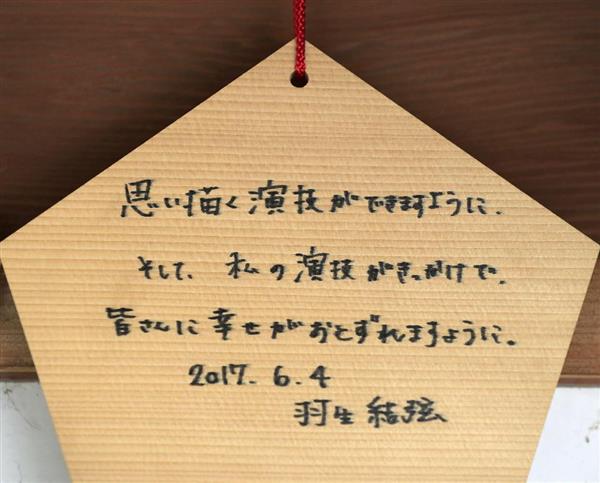 思い描く演技ができますように.
そして、私の演技がきっかけで、
皆さんに幸せがおとずれますように。
2017. 6. 4
羽生結弦